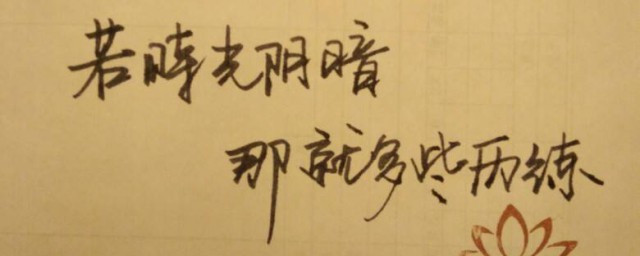 若時光阴暗
那就多些历练